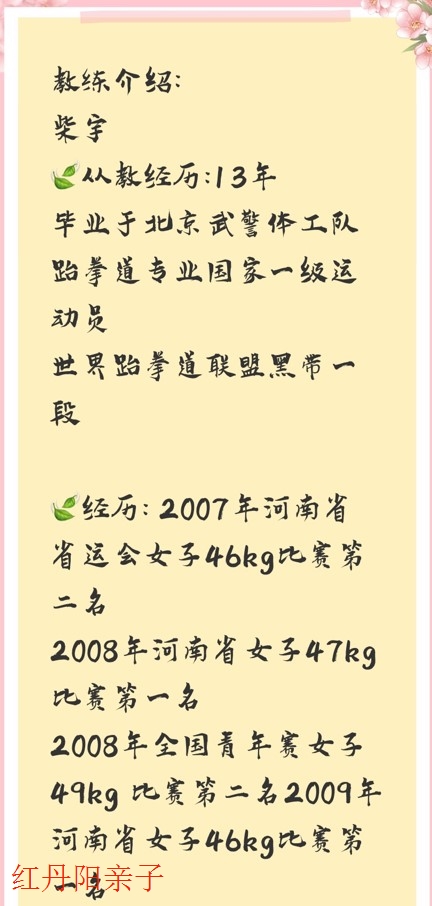 教练介绍:
柴宇
从教经历:13年
毕业于北京武警体工队
跆拳道专业国家一级运
动员
世界跆拳道联盟黑带一
段
经历: 2007年河南省
省运会女子46kg比赛第
二名
2008年河南省女子47kg
比赛第一名
2008年全国青年赛女子
49kg 比赛第二名2009年
河南省女子46kg比赛第
一名
红丹阳亲子